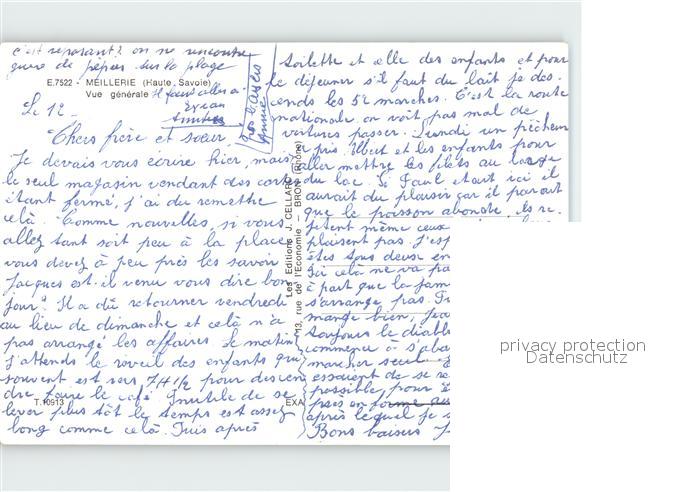 c'est reposant? on ne rencontre
guère de pépées sur la plage
E.7522 - MEILLERIE (Haute Savoie)
Vue générale
Il faut aller à
Evian
Le 12
Chers frère et sœur,
Je devais vous écrire hier, mais
le seul magasin vendant des cartes
étant fermé, j'ai du remettre
celà. Comme nouvelles, si vous
allez tant soit peu à la place
vous devez à peu près les savoir
Jacques est-il venu vous dire bon
jour? Il a dû retourner vendredi
au lieu de dimanche et celà n'a
pas arrangé les affaires. Le matin
j'attends le réveil des enfants qui
souvent est vers 7h 1/2 pour descen
dre faire le café. Inutile de se
lever plus tôt le temps est assez
long comme celà. Puis après
T.10913
Les Editions J. CELLARD
13, rue de l'Economie BRON (Rhône)
EXA
toilette et celle des enfants et pour
le déjeuner s'il faut du lait je des.
cends les 52 marches. C'est la route
nationale on voit pas mal de
voitures passer. Lundi un pêcheur
a pris Albert et les enfants pour
aller mettre les filets au large
du lac. Si Paul etait ici il
aurait du plaisir car il parait
que le poisson abonde. Ils re.
jetent même ceux
plaisent pas. J'esp
êtes tous deux en
Ici celà ne va pa
à part que la fam
s'arrange pas.
mange bien,
toujours le diabl
commence à s'aba
marcher seul
essaient de se re
possible, pour
après lequel je
Bons baisers
privacy protection
Datenschutz